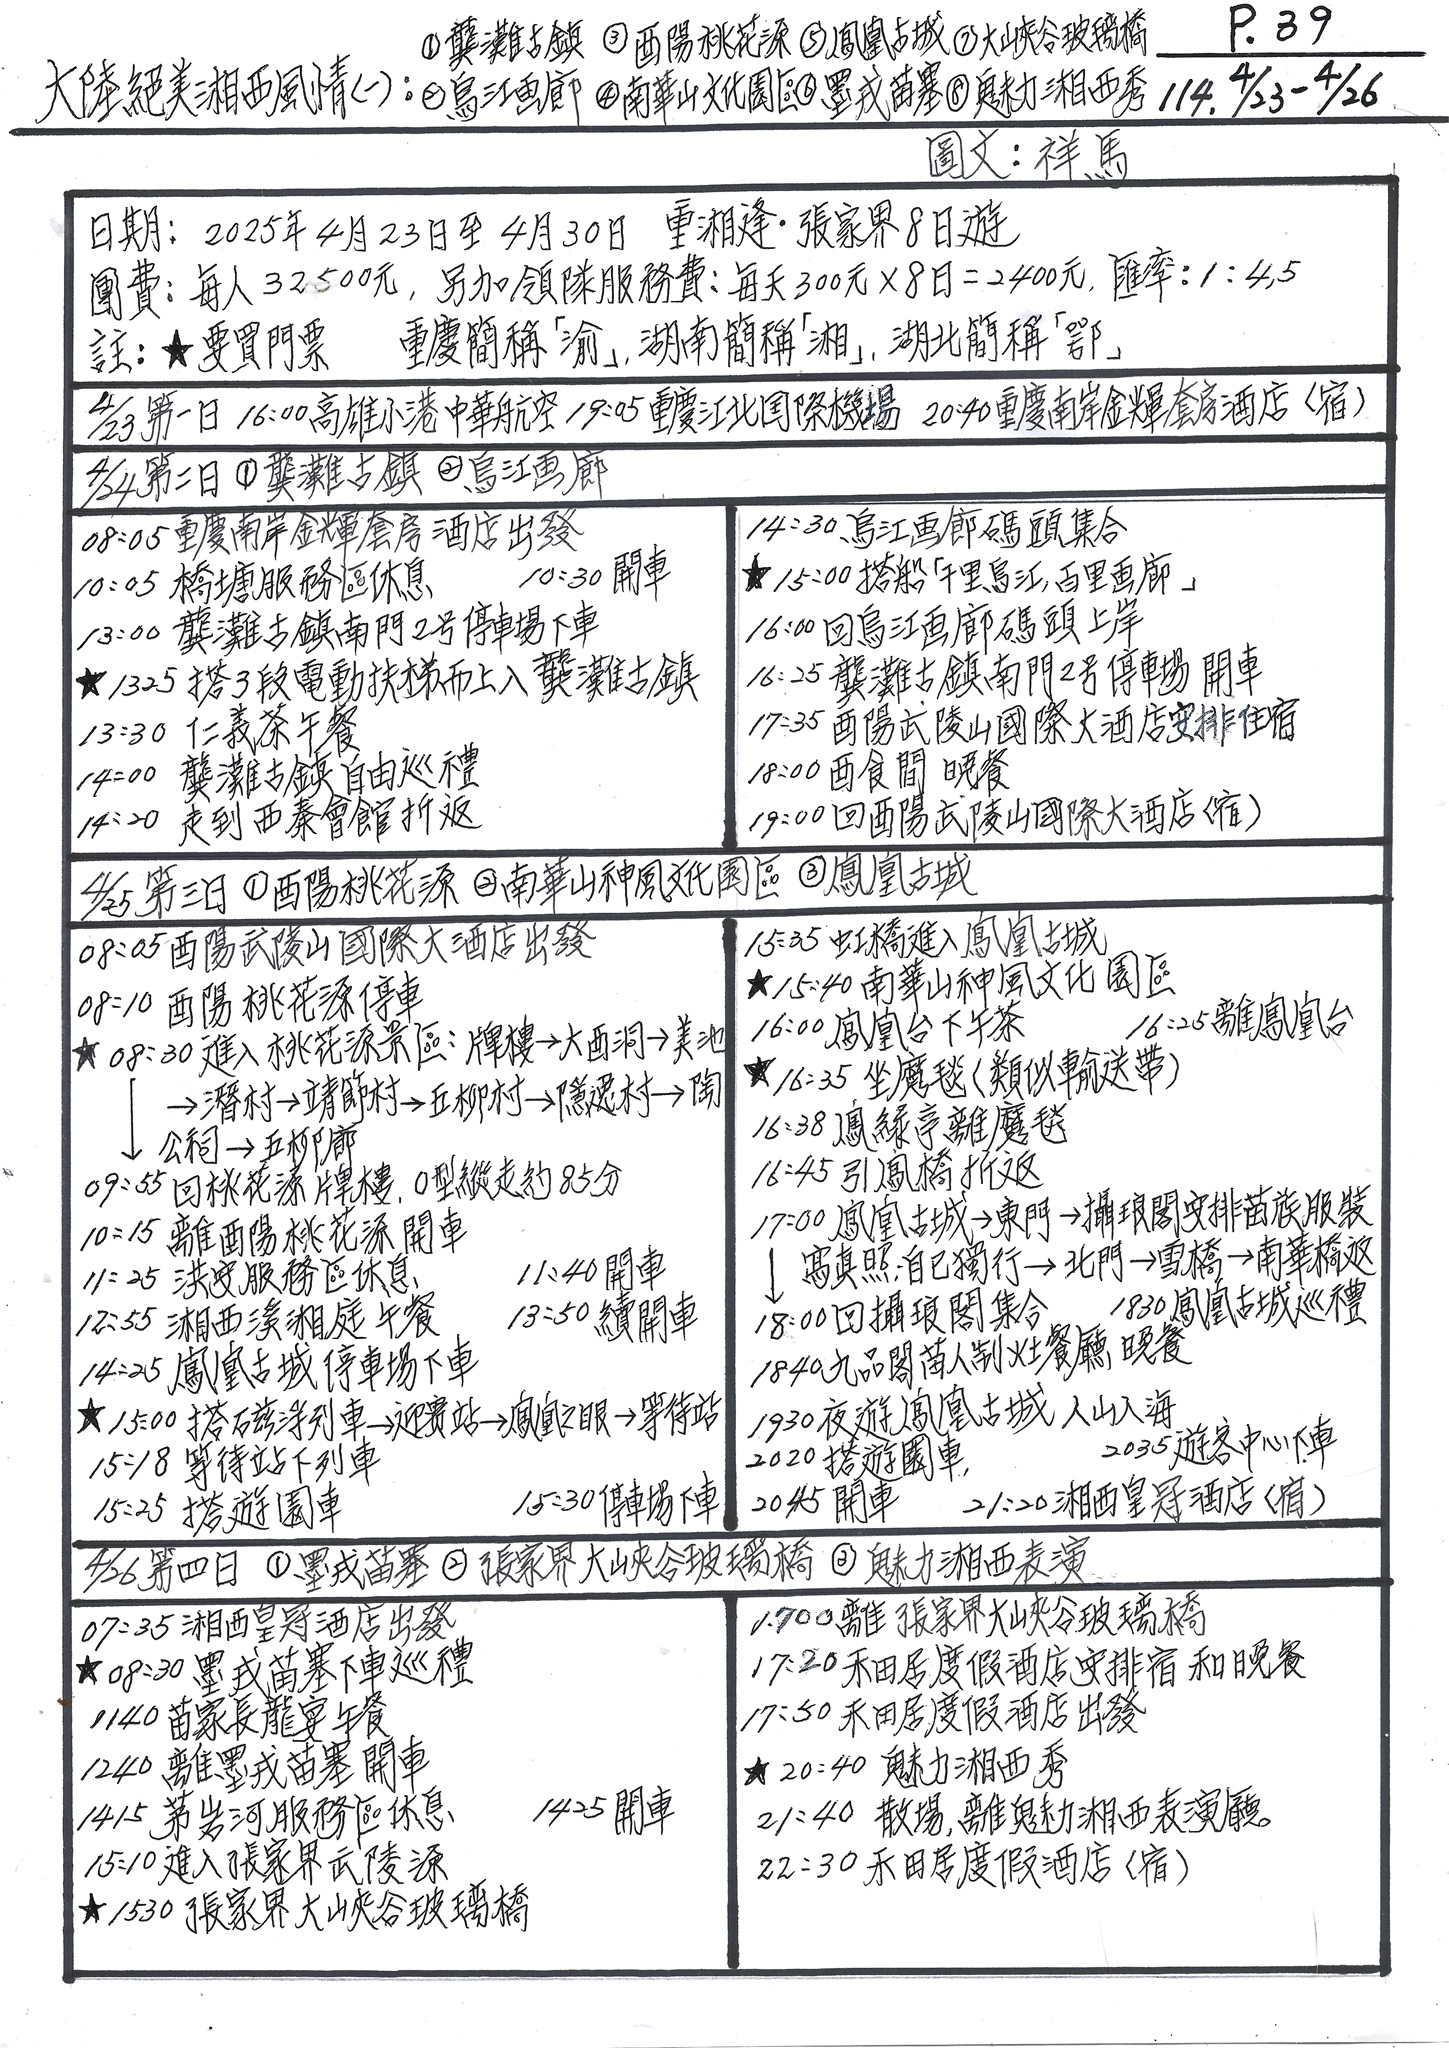 P.39
①龔灘古鎮 ③酉陽桃花源 ⑤鳳凰古城 ⑦大峽谷玻璃橋
大陸絕美湘西風情(一)：②烏江画廊 ④南華山文化園區 ⑥墨戎苗寨 ⑧魅力湘西秀 114. 4/23-4/26
圖文：祥馬
日期：2025年4月23日至4月30日 重湘逢·張家界8日遊
團費：每人32500元，另加領隊服務費：每天300元×8日=2400元，匯率：1：4,5
註：★要買門票 重慶簡稱「渝」，湖南簡稱「湘」，湖北簡稱「鄂」
4/23第一日 16:00高雄小港中華航空 19:05重慶江北国際機場 20:40重慶南岸金輝套房酒店〈宿〉
4/24第二日 ①龔灘古鎮 ②烏江画廊
08:05重慶南岸金輝套房酒店出發
10:05 橋塘服務區休息 10:30開車
13:00 龔灘古鎮南門2号停車場下車
★1325 搭3段電動扶梯而上入龔灘古鎮
13:30 仁義茶午餐
14:00 龔灘古鎮自由巡禮
14:20 走到西秦會館折返
14:30烏江画廊碼頭集合
★15:00搭船「千里烏江，百里画廊」
16:00回烏江画廊碼頭上岸
16:25 龔灘古鎮南門2号停車場開車
17:35 酉陽武陵山國際大酒店安排住宿
18:00酉食間 晚餐
19:00回酉陽武陵山國際大酒店〈宿〉
4/25第三日 ①酉陽桃花源 ②南華山神風文化園區 ③鳳凰古城
08:05酉陽武陵山國際大酒店出發
08:10 酉陽桃花源停車
★08:30進入桃花源景區：牌樓→大酉洞→美池
→潛村→靖節村→五柳村→隱逸村→陶
公祠→五柳廊
09:55回桃花源牌樓，O型縱走約85分
10:15 離酉陽桃花源開車
11:25 洪安服務區休息 11:40開車
12:55 湘西溪湘庭午餐 13:50續開車
14:25鳳凰古城停車場下車
★15:00搭磁浮列車→迎賓站→鳳凰之眼→等待站
15:18 等待站下列車
15:25 搭遊園車 15:30停車場下車
15:35 虹橋進入鳳凰古城
★15:40南華山神風文化園區
16:00鳳凰台下午茶 16:25離鳳凰台
★16:35 坐魔毯〈類似輸送帶〉
16:38 鳳緣亭離魔毯
16:45 引鳳橋折返
17:00 鳳凰古城→東門→攝琅閣安排苗族服裝
寫真照；自己獨行→北門→雪橋→南華橋返
18:00回攝琅閣集合 1830鳳凰古城巡禮
1840九品閣苗人制灶餐廳 晚餐
1930夜遊鳳凰古城 人山人海
2020搭遊園車， 2035遊客中心下車
2045 開車 21:20湘西皇冠酒店〈宿〉
4/26第四日 ①墨戎苗寨 ②張家界大峽谷玻璃橋 ③魅力湘西表演
07:35湘西皇冠酒店出發
★08:30墨戎苗寨下車巡禮
1140苗家長龍宴午餐
1240離墨戎苗寨開車
1415茅岩河服務區休息 1425開車
15:10進入張家界武陵源
★1530張家界大峽谷玻璃橋
1700離張家界大峽谷玻璃橋
17:20禾田居度假酒店安排宿和晚餐
17:50禾田居度假酒店出發
★20:40 魅力湘西秀
21:40 散場，離魅力湘西表演廳。
22:30禾田居度假酒店〈宿〉